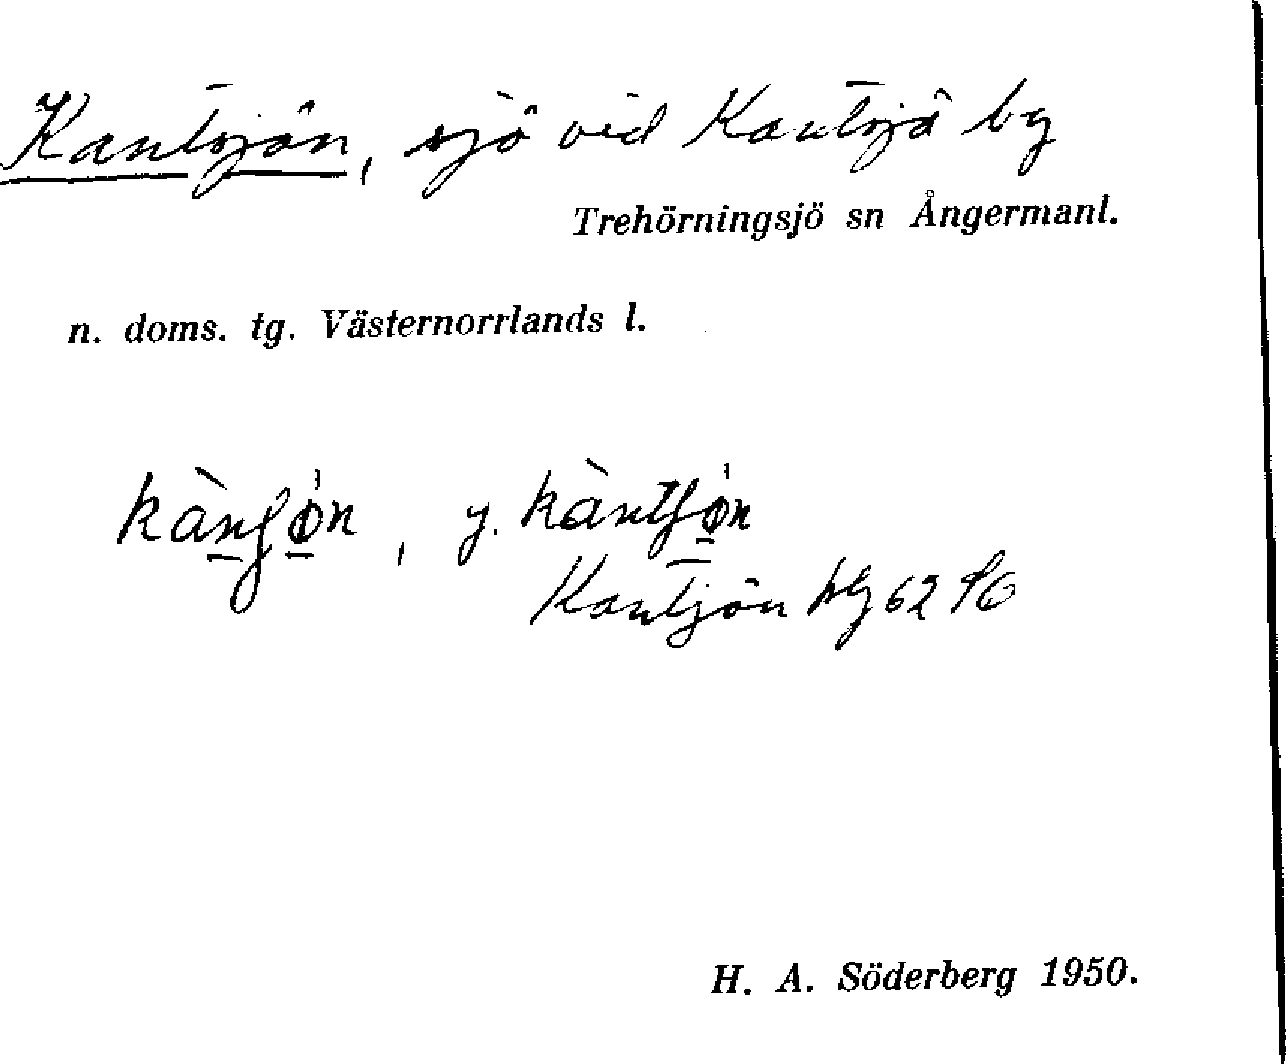 Kantsjön, sjö vid Kantsjö by
Trehörningsjö sn Ångermanl.
n. doms. tg. Västernorrlands l.
kànʃø̀n, y. kàntʃø̀n
Kantjön hg 62
H. A. Söderberg 1950.